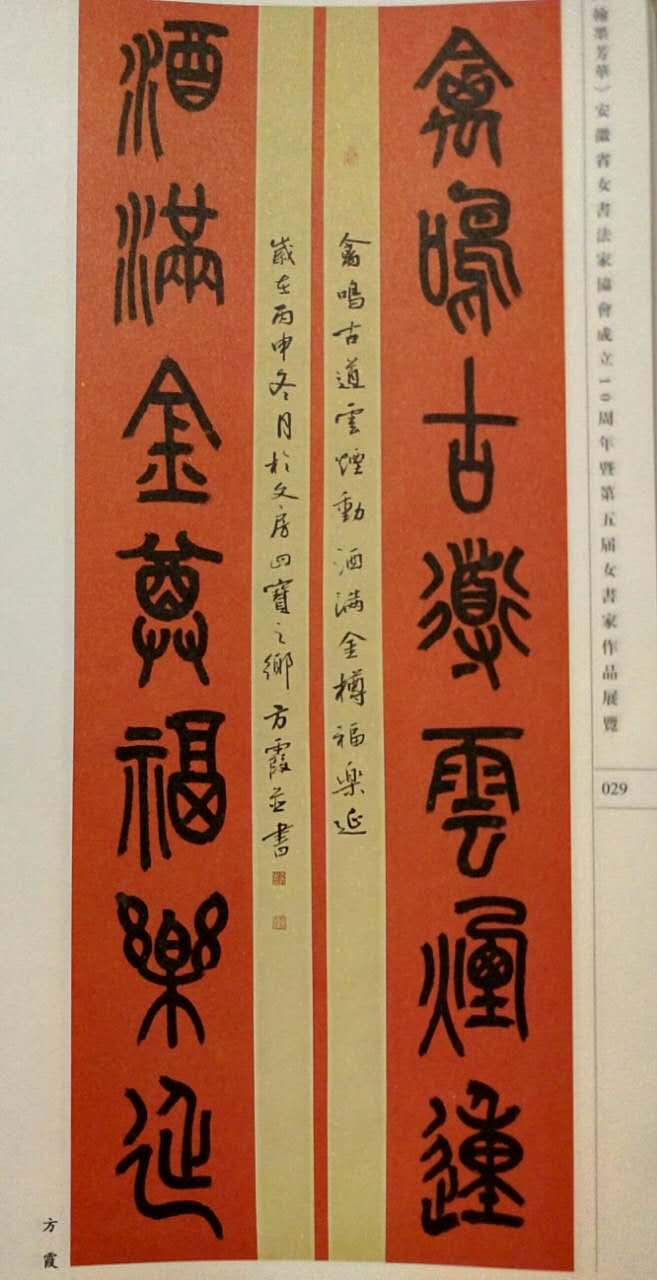 翰墨芳華）安徽省女書法家協會成立10周年暨第五届女書家作品展覽
029
禽鳴古道雲煙動
禽鳴古道雲煙動 酒满金樽福楽延
歲在丙申冬月於文房四寶之鄉方霞並書
酒滿金尊福樂延
方霞